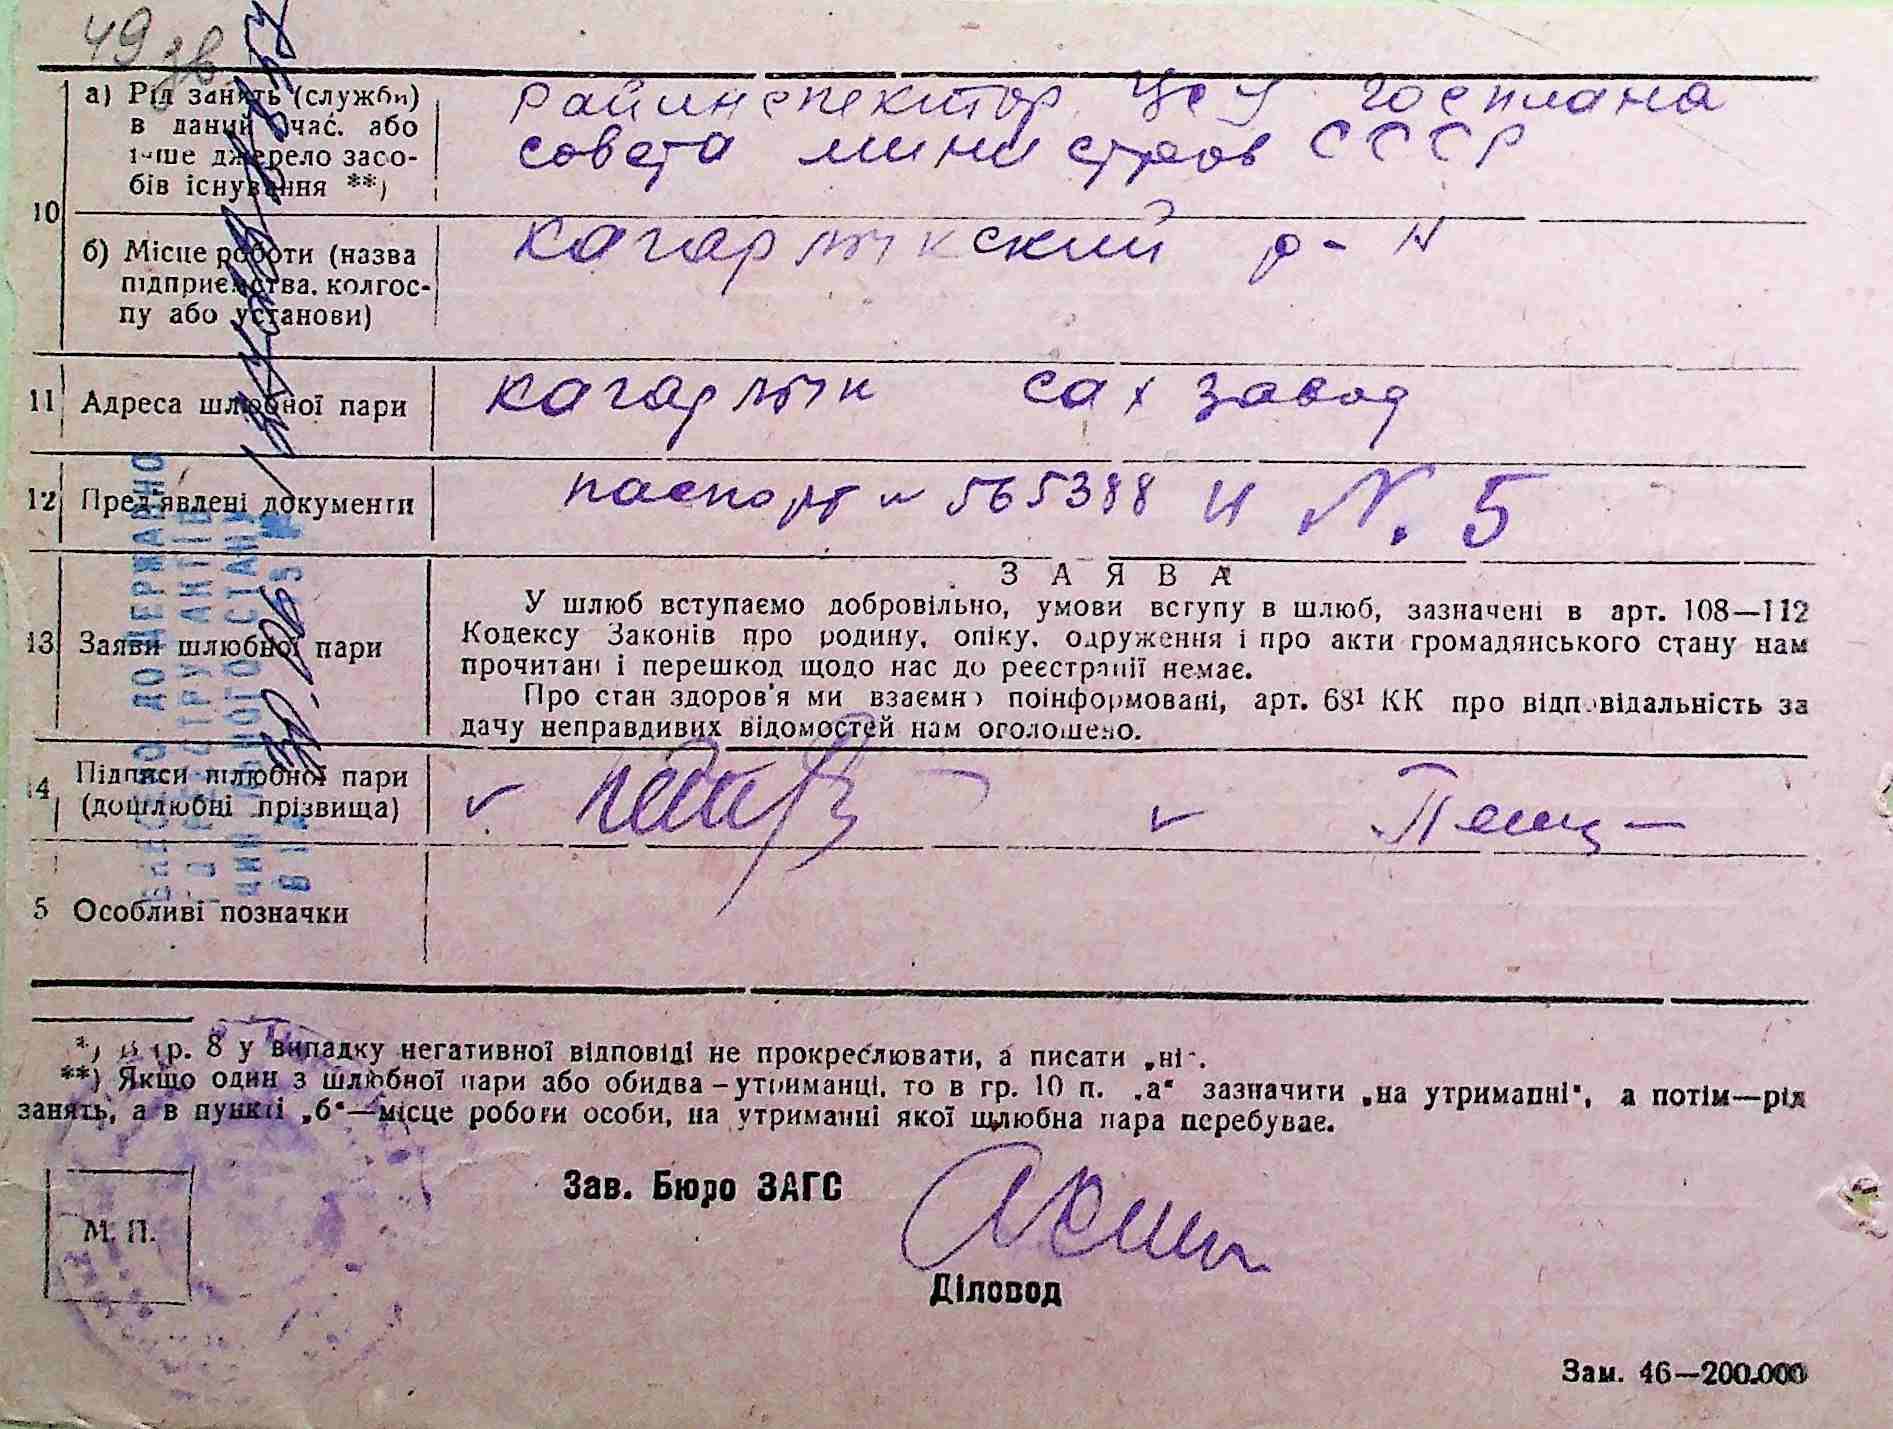 49 зв.
10
а) Рід занять (служби)
в даний час, або
інше джерело засо-
бів існування **)
Райинспектор ЦСУ Госплана
совета министров СССР
б) Місце роботи (назва
підприємства, колгос-
пу або установи)
Кагарлыкский р-н
11 Адреса шлюбної пари
Кагарлык сахзавод
12 Пред'явлені документи
паспорт № 565388 и N. 5
13 Заяви шлюбної пари
ЗАЯВА
У шлюб вступаємо добровільно, умови вступу в шлюб, зазначені в арт. 108—112
Кодексу Законів про родину, опіку, одруження і про акти громадянського стану нам
прочитані і перешкод щодо нас до реєстрації немає.
Про стан здоров'я ми взаємно поінформовані, арт. 68¹ КК про відповідальність за
дачу неправдивих відомостей нам оголошено.
14 Підписи шлюбної пари
(дошлюбні прізвища)
5 Особливі позначки
*) В гр. 8 у випадку негативної відповіді не прокреслювати, а писати „ні".
**) Якщо один з шлюбної пари або обидва – утриманці, то в гр. 10 п. „а" зазначити „на утриманні", а потім—рід
занять, а в пункті „б"—місце роботи особи, на утриманні якої шлюбна пара перебуває.
М. П.
Зав. Бюро ЗАГС
Діловод
Зам. 46—200.000